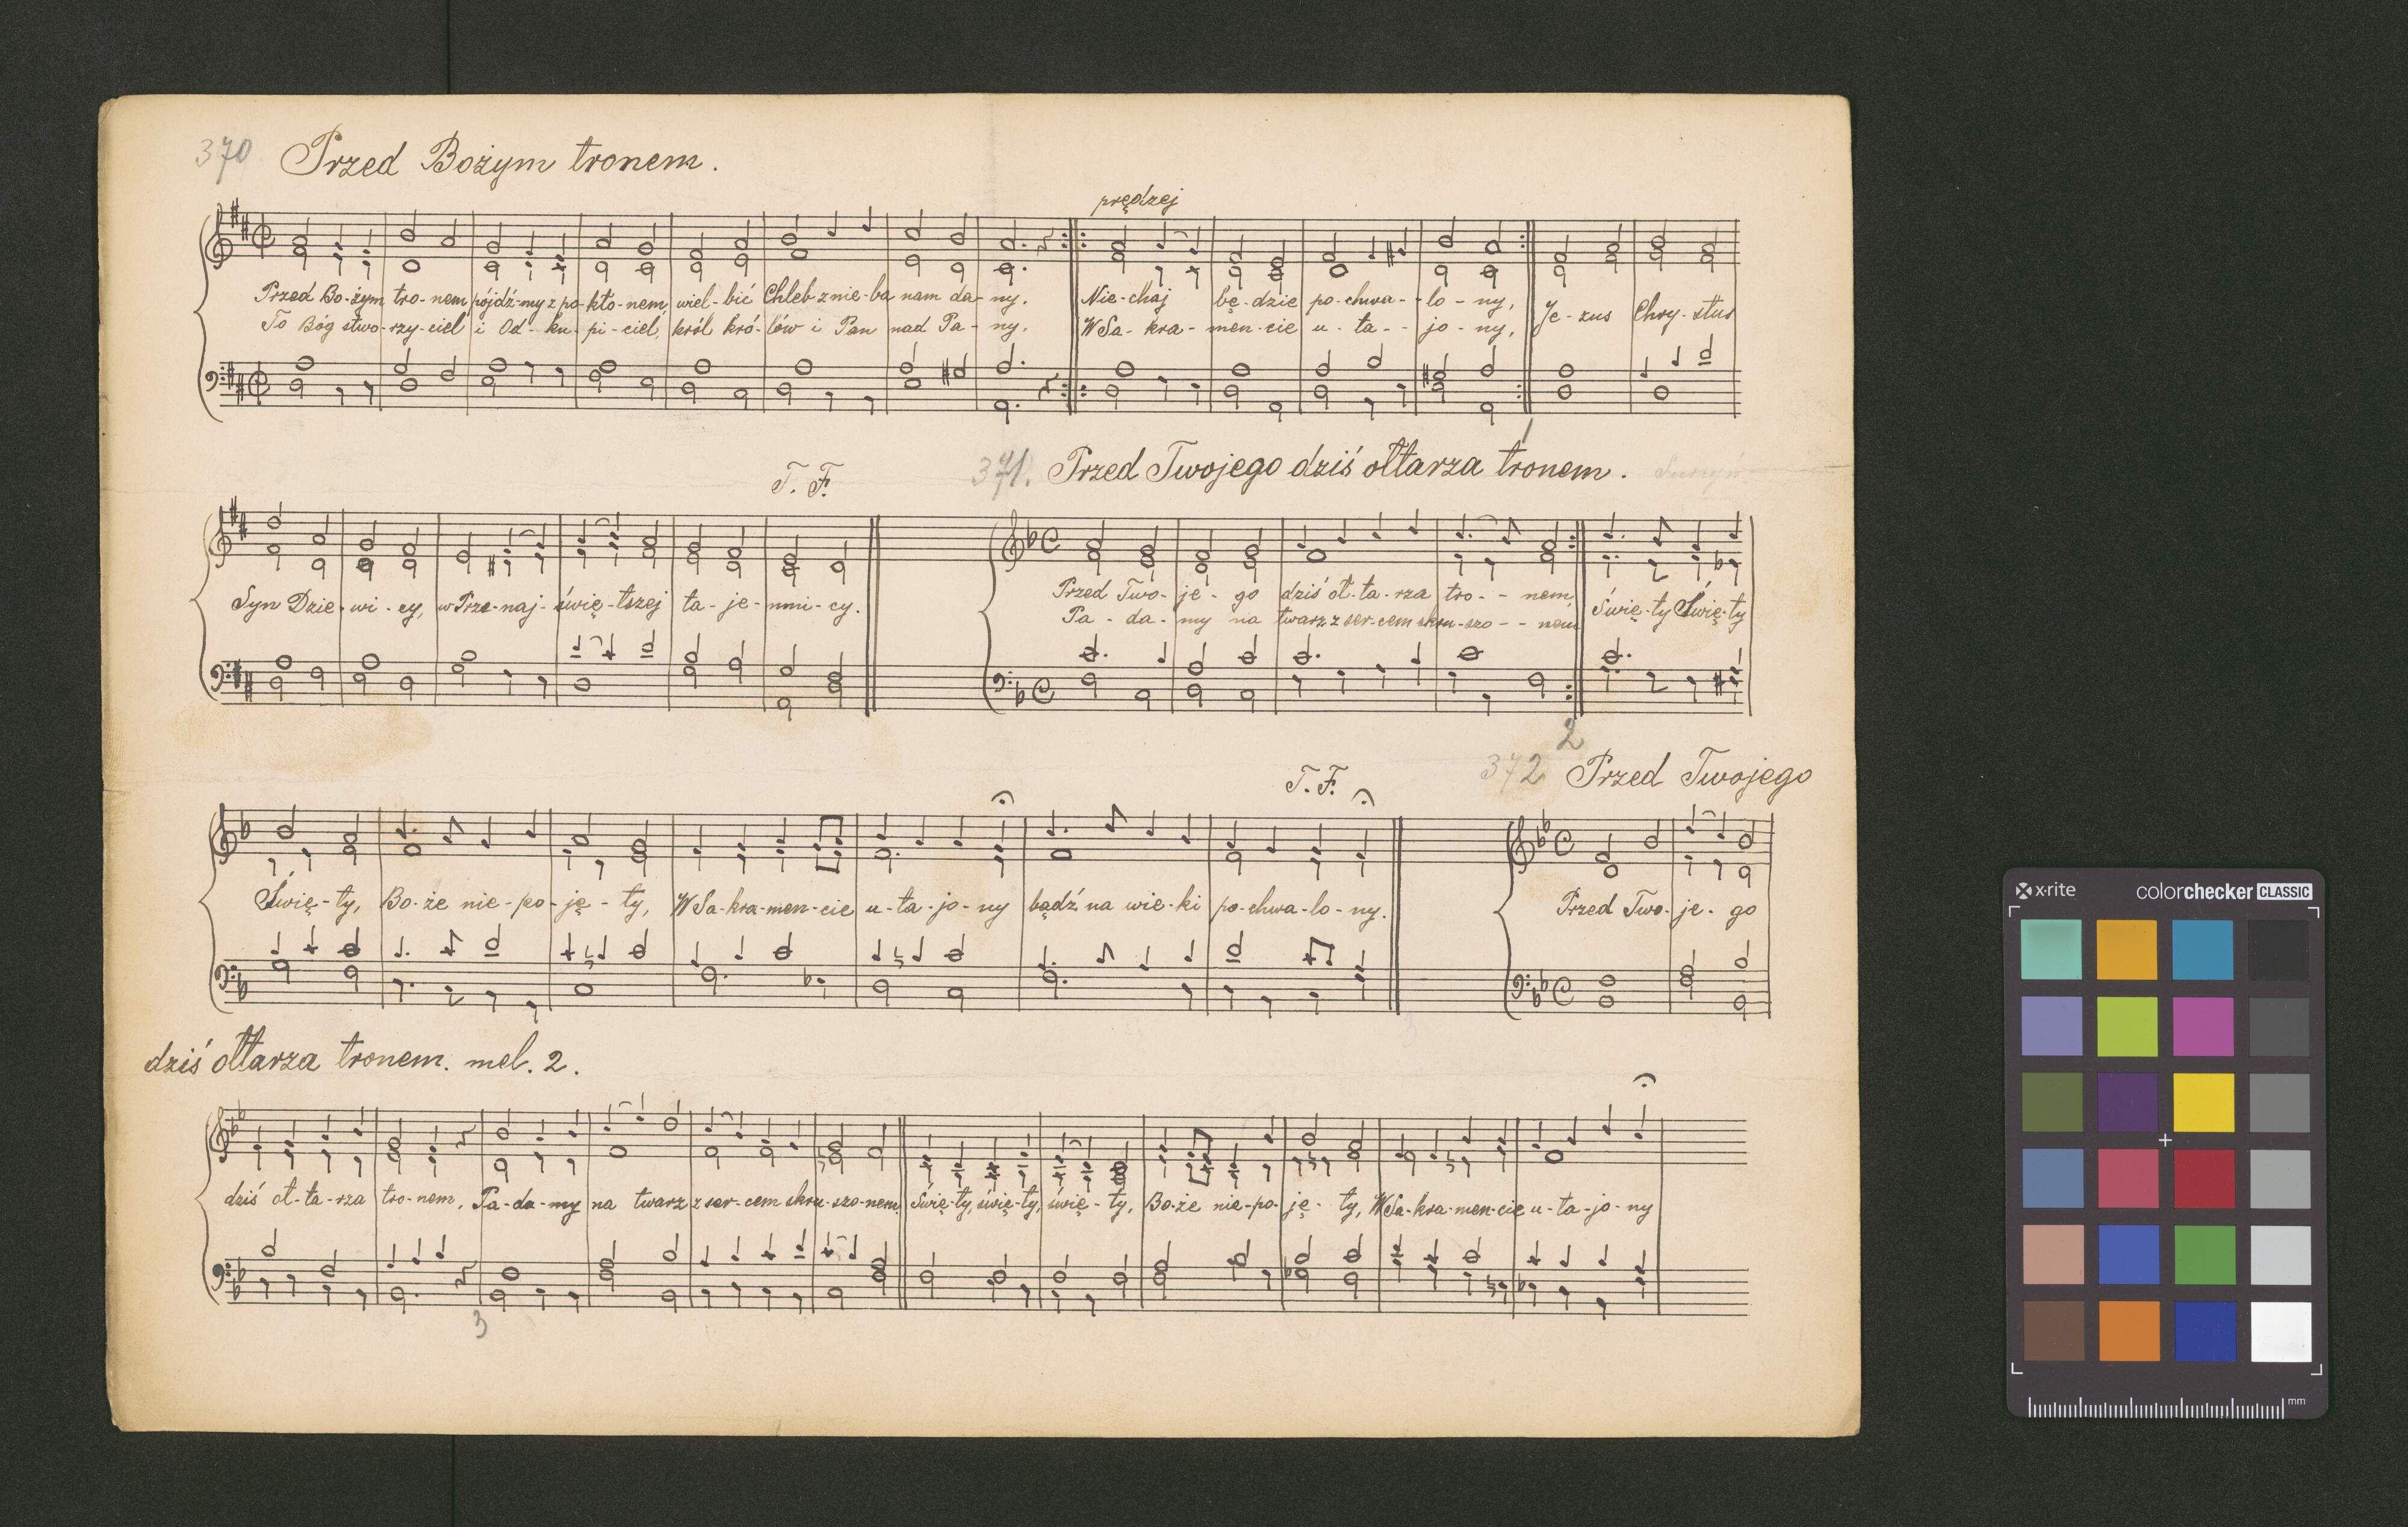 370 Przed Bożym tronem.
prędzej
Przed Bo-żym tro-nem pójdź-my z po-kło-nem, wiel-bić Chleb z nie-ba nam da-ny. Nie-chaj bę-dzie po-chwa--lo-ny, Je-zus Chry-stus
To Bóg stwo-rzy-ciel i Od-ku-pi-ciel, król kró-lów i Pan nad Pa-ny. W Sa-kra-men-cie u-ta--jo-ny,
T. F.
371. Przed Twojego dziś ołtarza tronem.
Syn Dzie-wi-cy, w Prze-naj-święt-szej ta-je-mni-cy.
Przed Two-je-go dziś oł-ta-rza tro--nem, Świę-ty Świę-ty
Pa-da-my na twarz z ser-cem skru-szo--nem
2
T. F.
372 Przed Twojego
Świę-ty, Bo-że nie-po-ję-ty, W Sa-kra-men-cie u-ta-jo-ny bądź na wie-ki po-chwa-lo-ny.
Przed Two-je-go
dziś ołtarza tronem. mel. 2.
dziś oł-ta-rza tro-nem, Pa-da-my na twarz z ser-cem skru-szo-nem Świę-ty, świę-ty, świę-ty, Bo-że nie-po-ję-ty, W Sa-kra-men-cie u-ta-jo-ny
3
x-rite colorchecker CLASSIC
mm